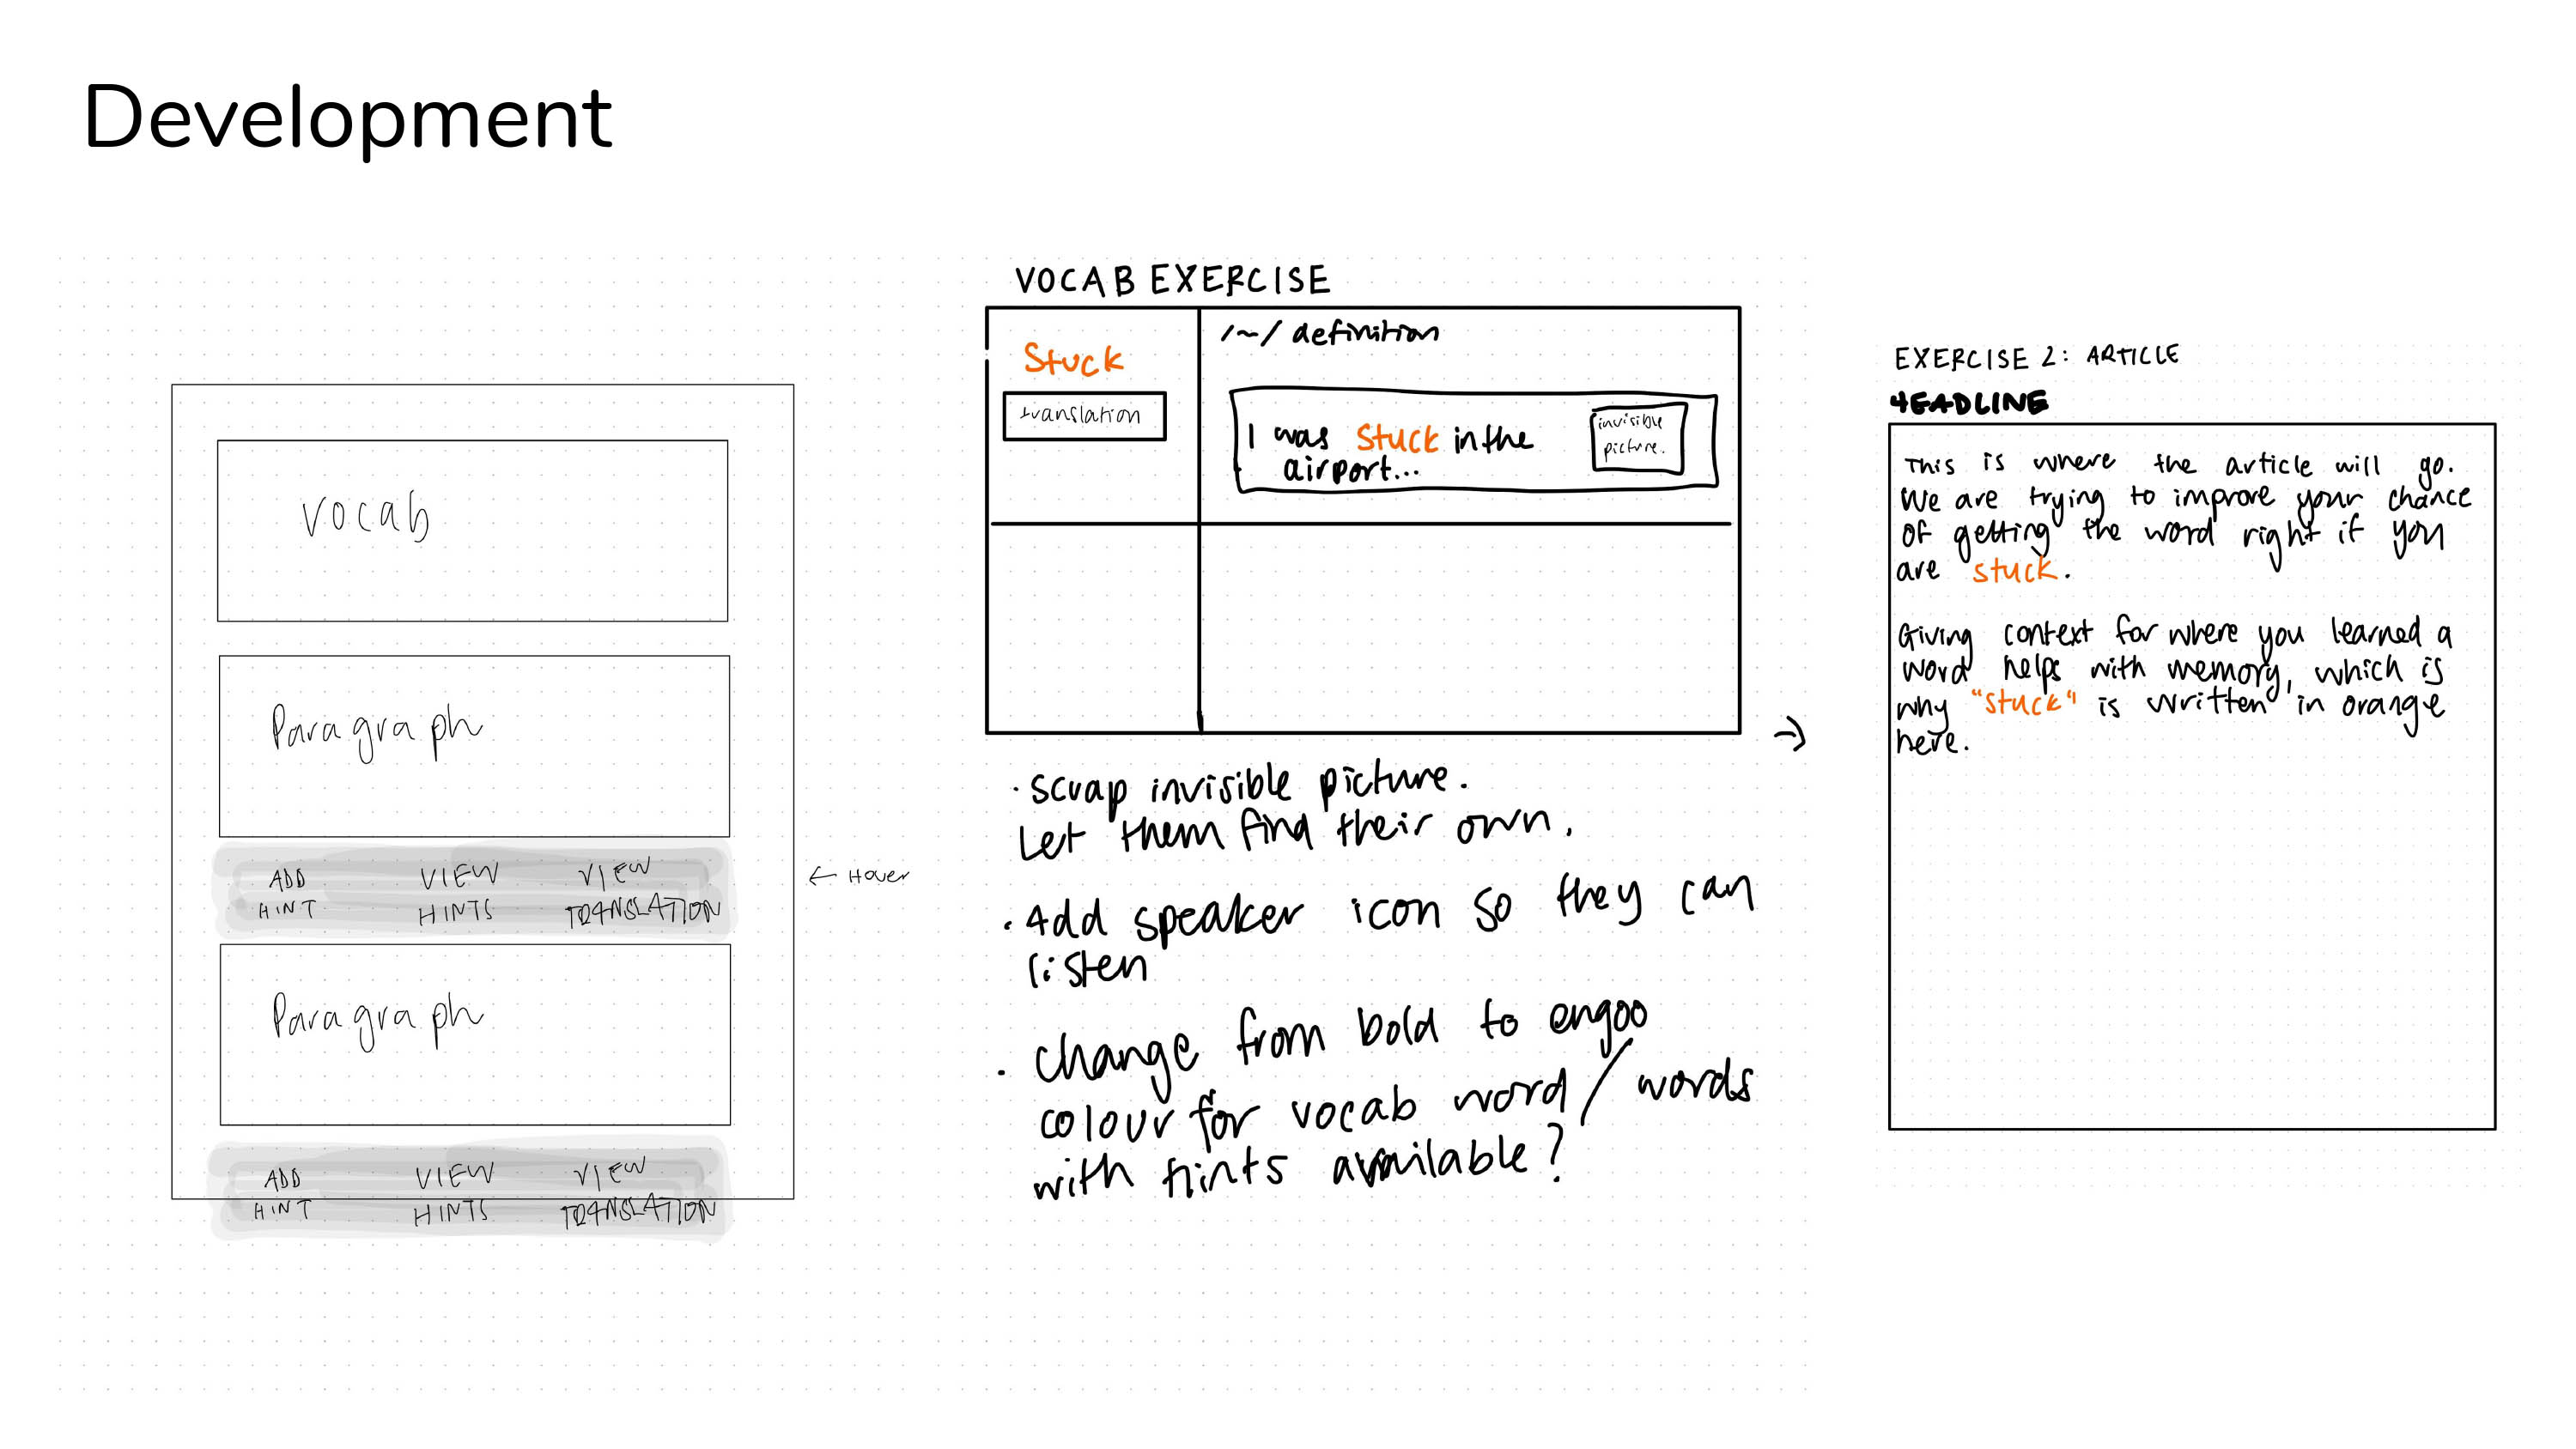 Development
vocab
Paragraph
ADD VIEW VIEW
HINT HINTS TRANSLATION
← Hover
Paragraph
ADD VIEW VIEW
HINT HINTS TRANSLATION
VOCAB EXERCISE
Stuck
translation
/~/ definition
I was stuck in the
airport...
invisible
picture.
· scrap invisible picture.
Let them find their own.
· Add speaker icon so they can
listen
· change from bold to engoo
colour for vocab word / words
with hints available?
→
EXERCISE 2: ARTICLE
HEADLINE
This is where the article will go.
We are trying to improve your chance
of getting the word right if you
are stuck.
Giving context for where you learned a
word helps with memory, which is
why "stuck" is written in orange
here.